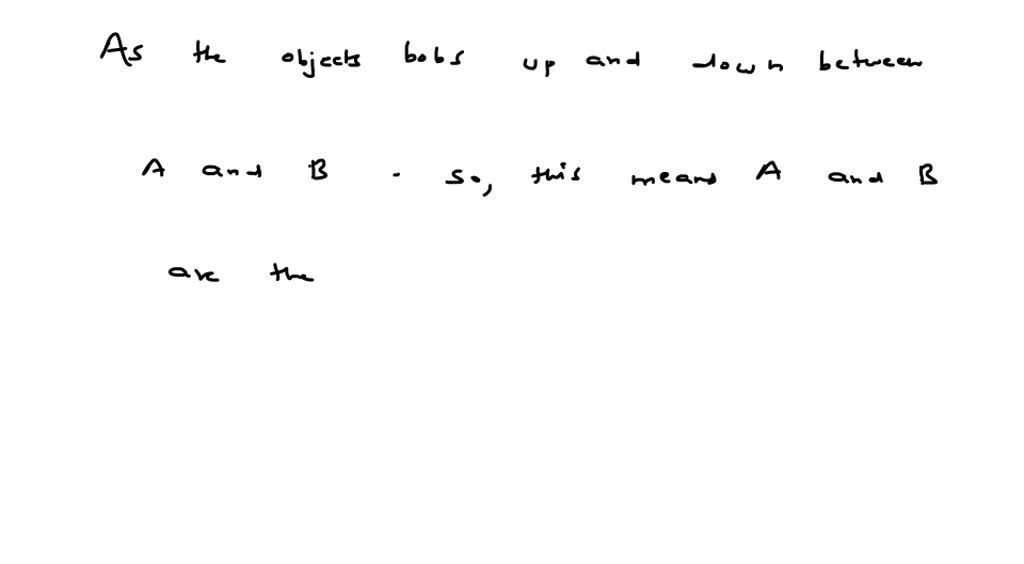 As the objects bobs up and down between
A and B . so, this means A and B
are the